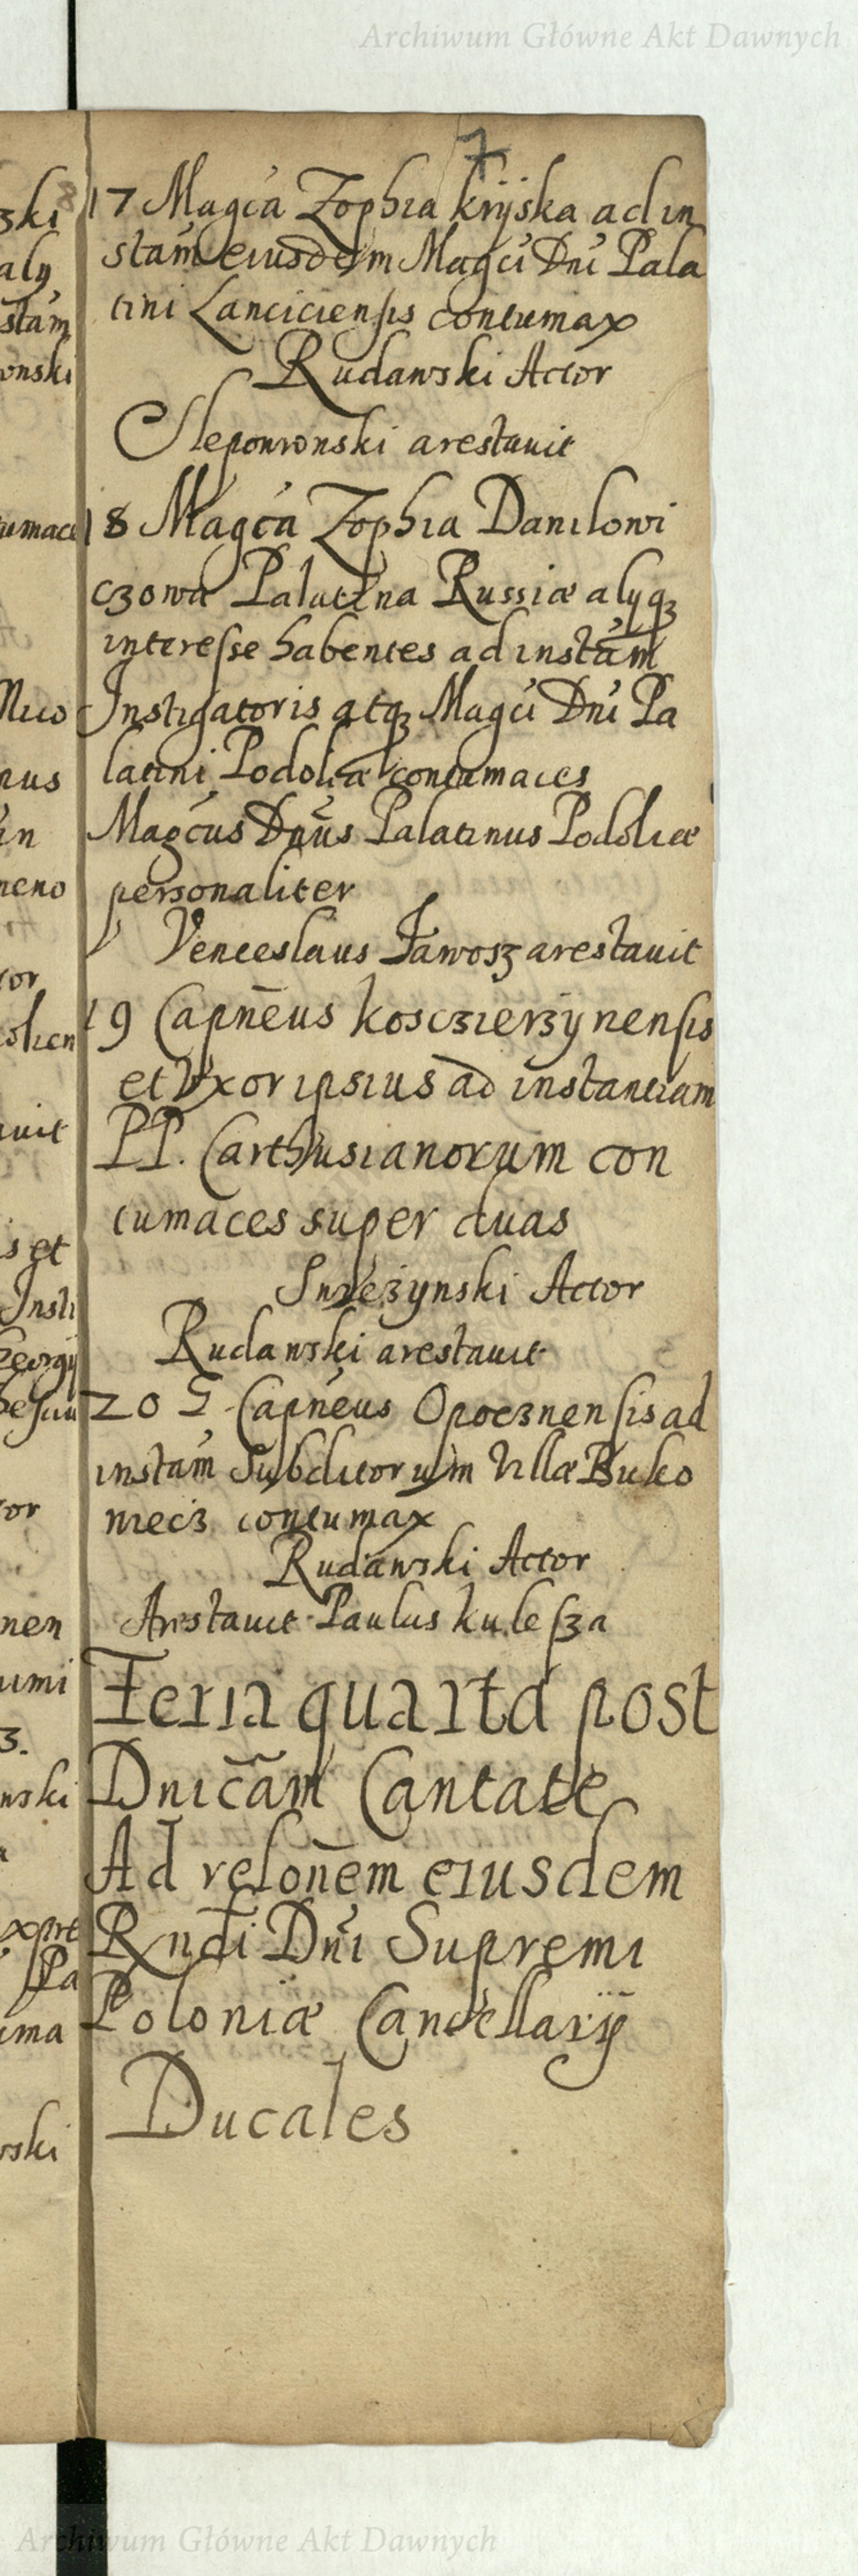 Archiwum Główne Akt Dawnych
7
17 Magca Zophia kryska ad in
stam eiusdem Magci Dni Pala
tini Lanciciensis contumax
Rudawski Actor
Sleponronski arestauit
18 Magca Zophia Danilowi
czowa Palatina Russiæ alyq3
interesse habentes ad instam
Instigatoris atq3 Magci Dni Pa
latini Podoliæ contumaces
Magcus Dnus Palatinus Podoliæ
personaliter
Venceslaus Jawosz arestauit
19 Capneus kosczierzynensis
et Vxor ipsius ad instantiam
PP. Carthusianorum con
tumaces super duas
Actor
Rudawski arestauit
20 G Capneus Opocznensis ad
instam Subditorum Villæ Buko
wiecz contumax
Rudawski Actor
Arestauit Paulus kulesza
Feria quarta post
Dnicam Cantate
Ad relonem eiusdem
Rndi Dni Supremi
Poloniæ Cancellarÿ
Ducales
Archiwum Główne Akt Dawnych